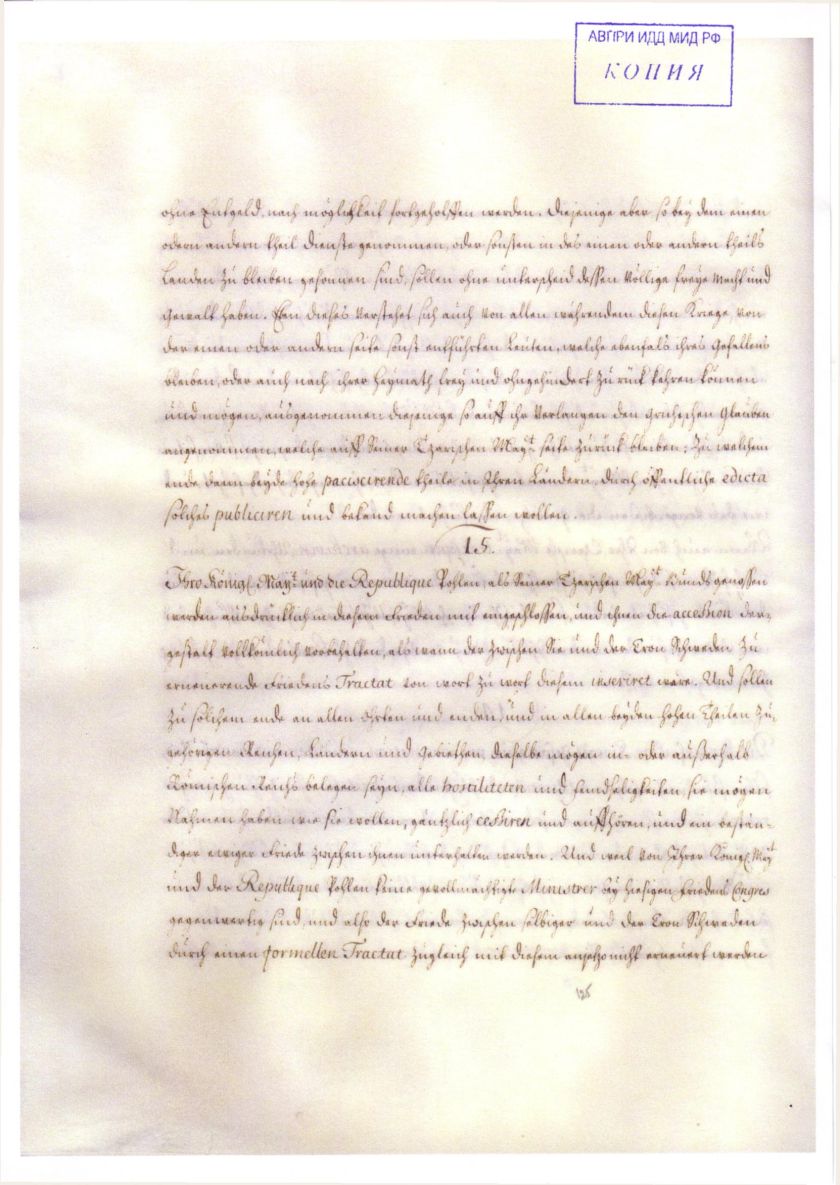 АВПРИ ИДД МИД РФ
КОПИЯ
ohne Entgeld, nach möglichkeit fortgeholffen werden. Diejenige aber so bey dem einen
odern andern theil dienste genommen, oder sonsten in des einen oder andern theils
Landen zu bleiben gesonnen sind, sollen ohne unterscheid dessen völlige freye Macht und
Gewalt haben. Eben dieses verstehet sich auch von allen währendem diesen Kriege, von
der einen oder andern seite sonst entführten Leuten, welche ebenfals ihres Gefallens
bleiben, oder auch nach ihrer Heymath frey und ohngehindert zu rück kehren können
und mögen, ausgenommen diejenige so auff ihr Verlangen den Grichschen Glauben
angenommen, welche auff Seiner Tzarischen Mayt. seite zurück bleiben; Zu welchem
ende dann beyde hohe paciscirende theile in Ihren Ländern, durch öffentliche edicta
solches publiciren und bekand machen lassen wollen.
15.
Ihro Königl. Mayt. und die Republique Pohlen, als Seiner Tzarischen Mayt. Bunds genossen
werden ausdrücklich in diesem Frieden mit eingeschlossen, und ihnen die accession der-
gestalt vollkömlich vorbehalten, als wann der zwischen Sie und der Cron Schweden zu
erneuerende Friedens Tractat von wort zu wort diesem inseriret wäre. Und sollen
zu solchem ende an allen Ohrten und enden, und in allen beyden hohen Theilen zu-
gehörigen Reichen, Ländern und Gebiethen, dieselbe mögen in- oder außerhalb
Römischen Reichs belegen seyn, alle hostiliteten und feindseligkeiten, sie mögen
Nahmen haben wie sie wollen, gäntzlich cessiren und auffhören, und ein bestän-
diger ewiger Friede zwischen ihnen unterhalten werden. Und weil von Ihrer Königl. Mayt
und der Republeque Pohlen keine gevollmächtigte Ministrer bey hiesigen Friedens Congres
gegenwertig sind, und also der Friede zwischen selbiger und der Cron Schweden
durch einen formellen Tractat zugleich mit diesem anjetzo nicht erneuert werden
125